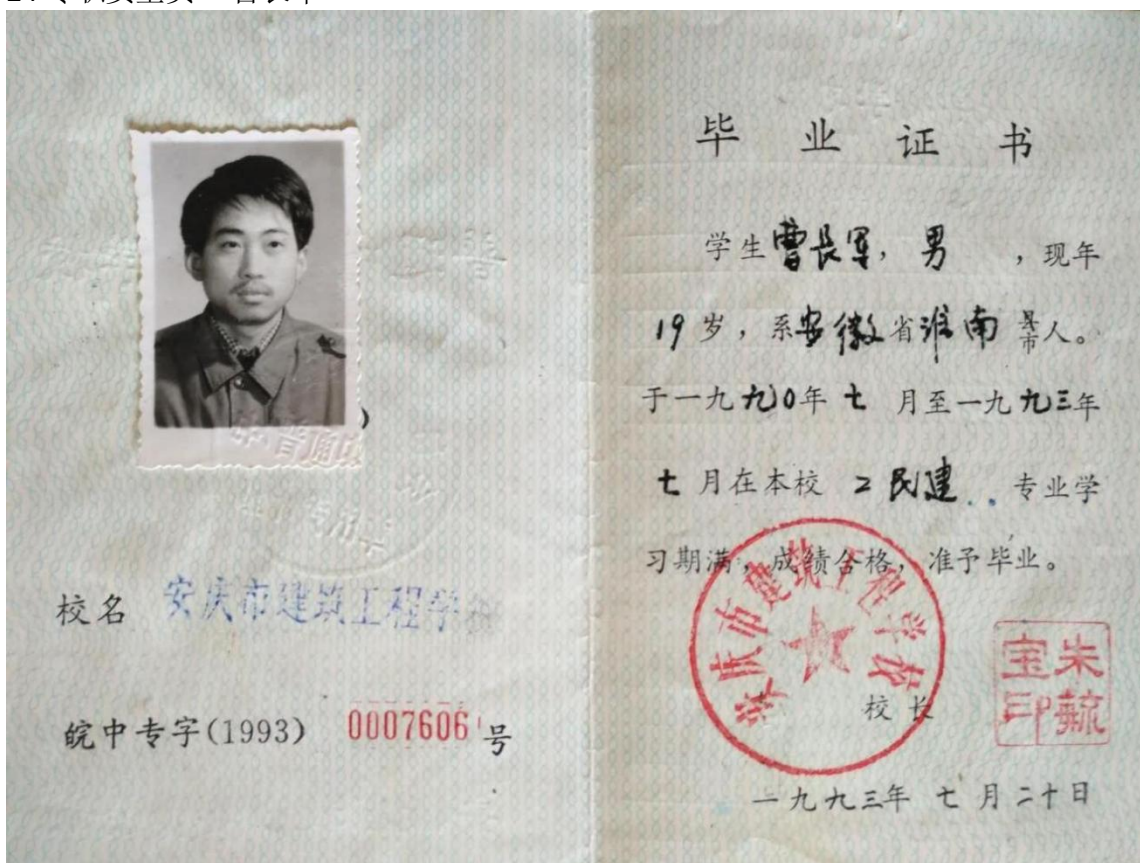 校名 安庆市建筑工程学校
皖中专字(1993) 0007606号
毕业证书
学生曹长军,男 ,现年
19岁,系安徽省淮南县市人。
于一九九0年七月至一九九三年
七月在本校 工民建 专业学
习期满,成绩合格,准予毕业。
安庆市建筑工程学校
校长
朱毓宝印
一九九三年七月二十日